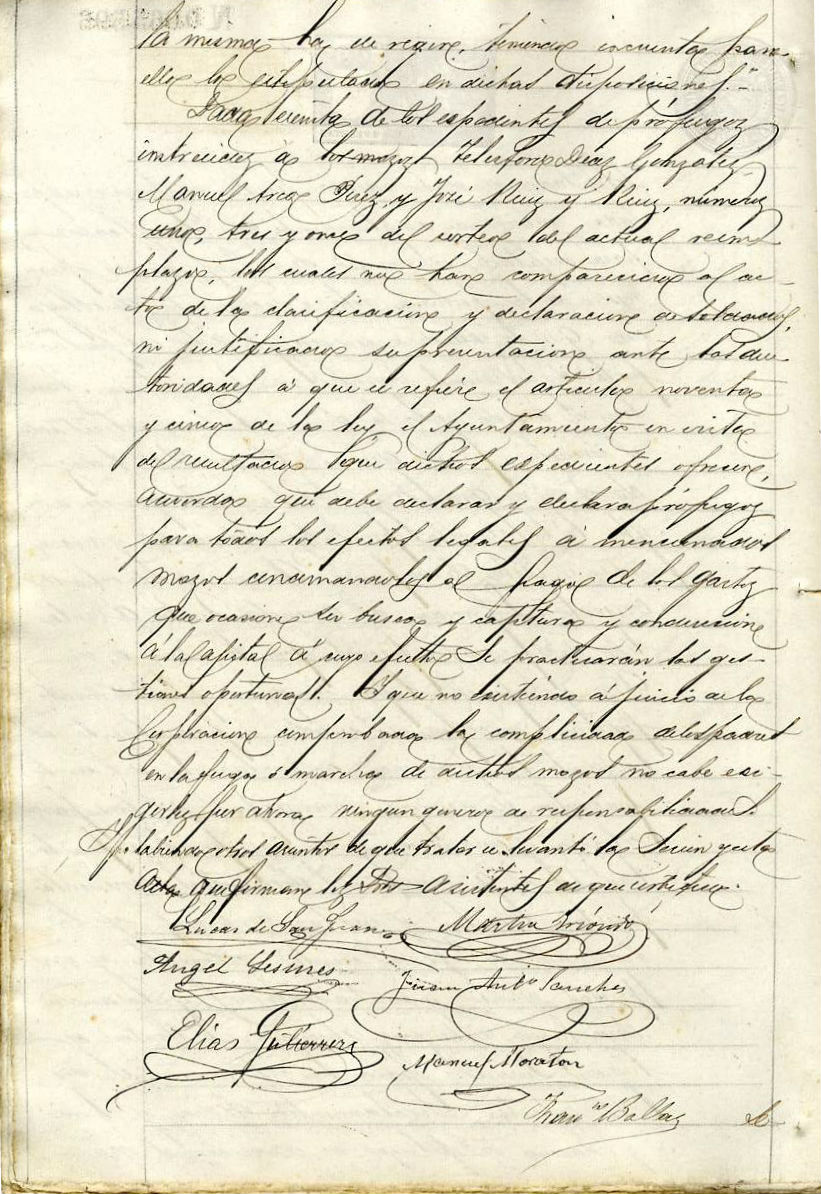 la misma ha de regirse, teniendo en cuenta para
ello lo estipulado en dichas disposiciones.
Dada cuenta de los espedientes de prófugos
instruidos á los mozos Telesforo Diaz Gonzalez,
Manuel Arce Perez y José Ruiz y Ruiz, numeros
uno, tres y once del sorteo del actual reem-
plazo, los cuales no han comparecido al ac-
to de la clasificacion y declaracion de soldados,
ni justificado su presentacion ante las au-
toridades á que se refiere el articulo noventa
y cinco de la ley el Ayuntamiento en vista
del resultado que dichos espedientes ofrecen,
acordó que debe declarar y declara prófugos
para todos los efectos legales á mencionados
mozos condenandoles al pago de los gastos
que ocasione su busca y captura y conduccion
á la capital á cuyo efecto se practicarán las ges-
tiones oportunas. Y que no existiendo á juicio de la
Corporacion comprobada la complicidad de los padres
en la fuga ó marcha de dichos mozos no cabe exi-
girles por ahora ningun genero de responsabilidad.
habiendo otros asuntos de que tratar se levantó la Sesion y esta
Acta que firman los Sres asistentes de que certifico.
Lucas de San Juan Martin
Angel Juan Antº Sanchez
Elias Gutierrez
Manuel Moraton
Franco